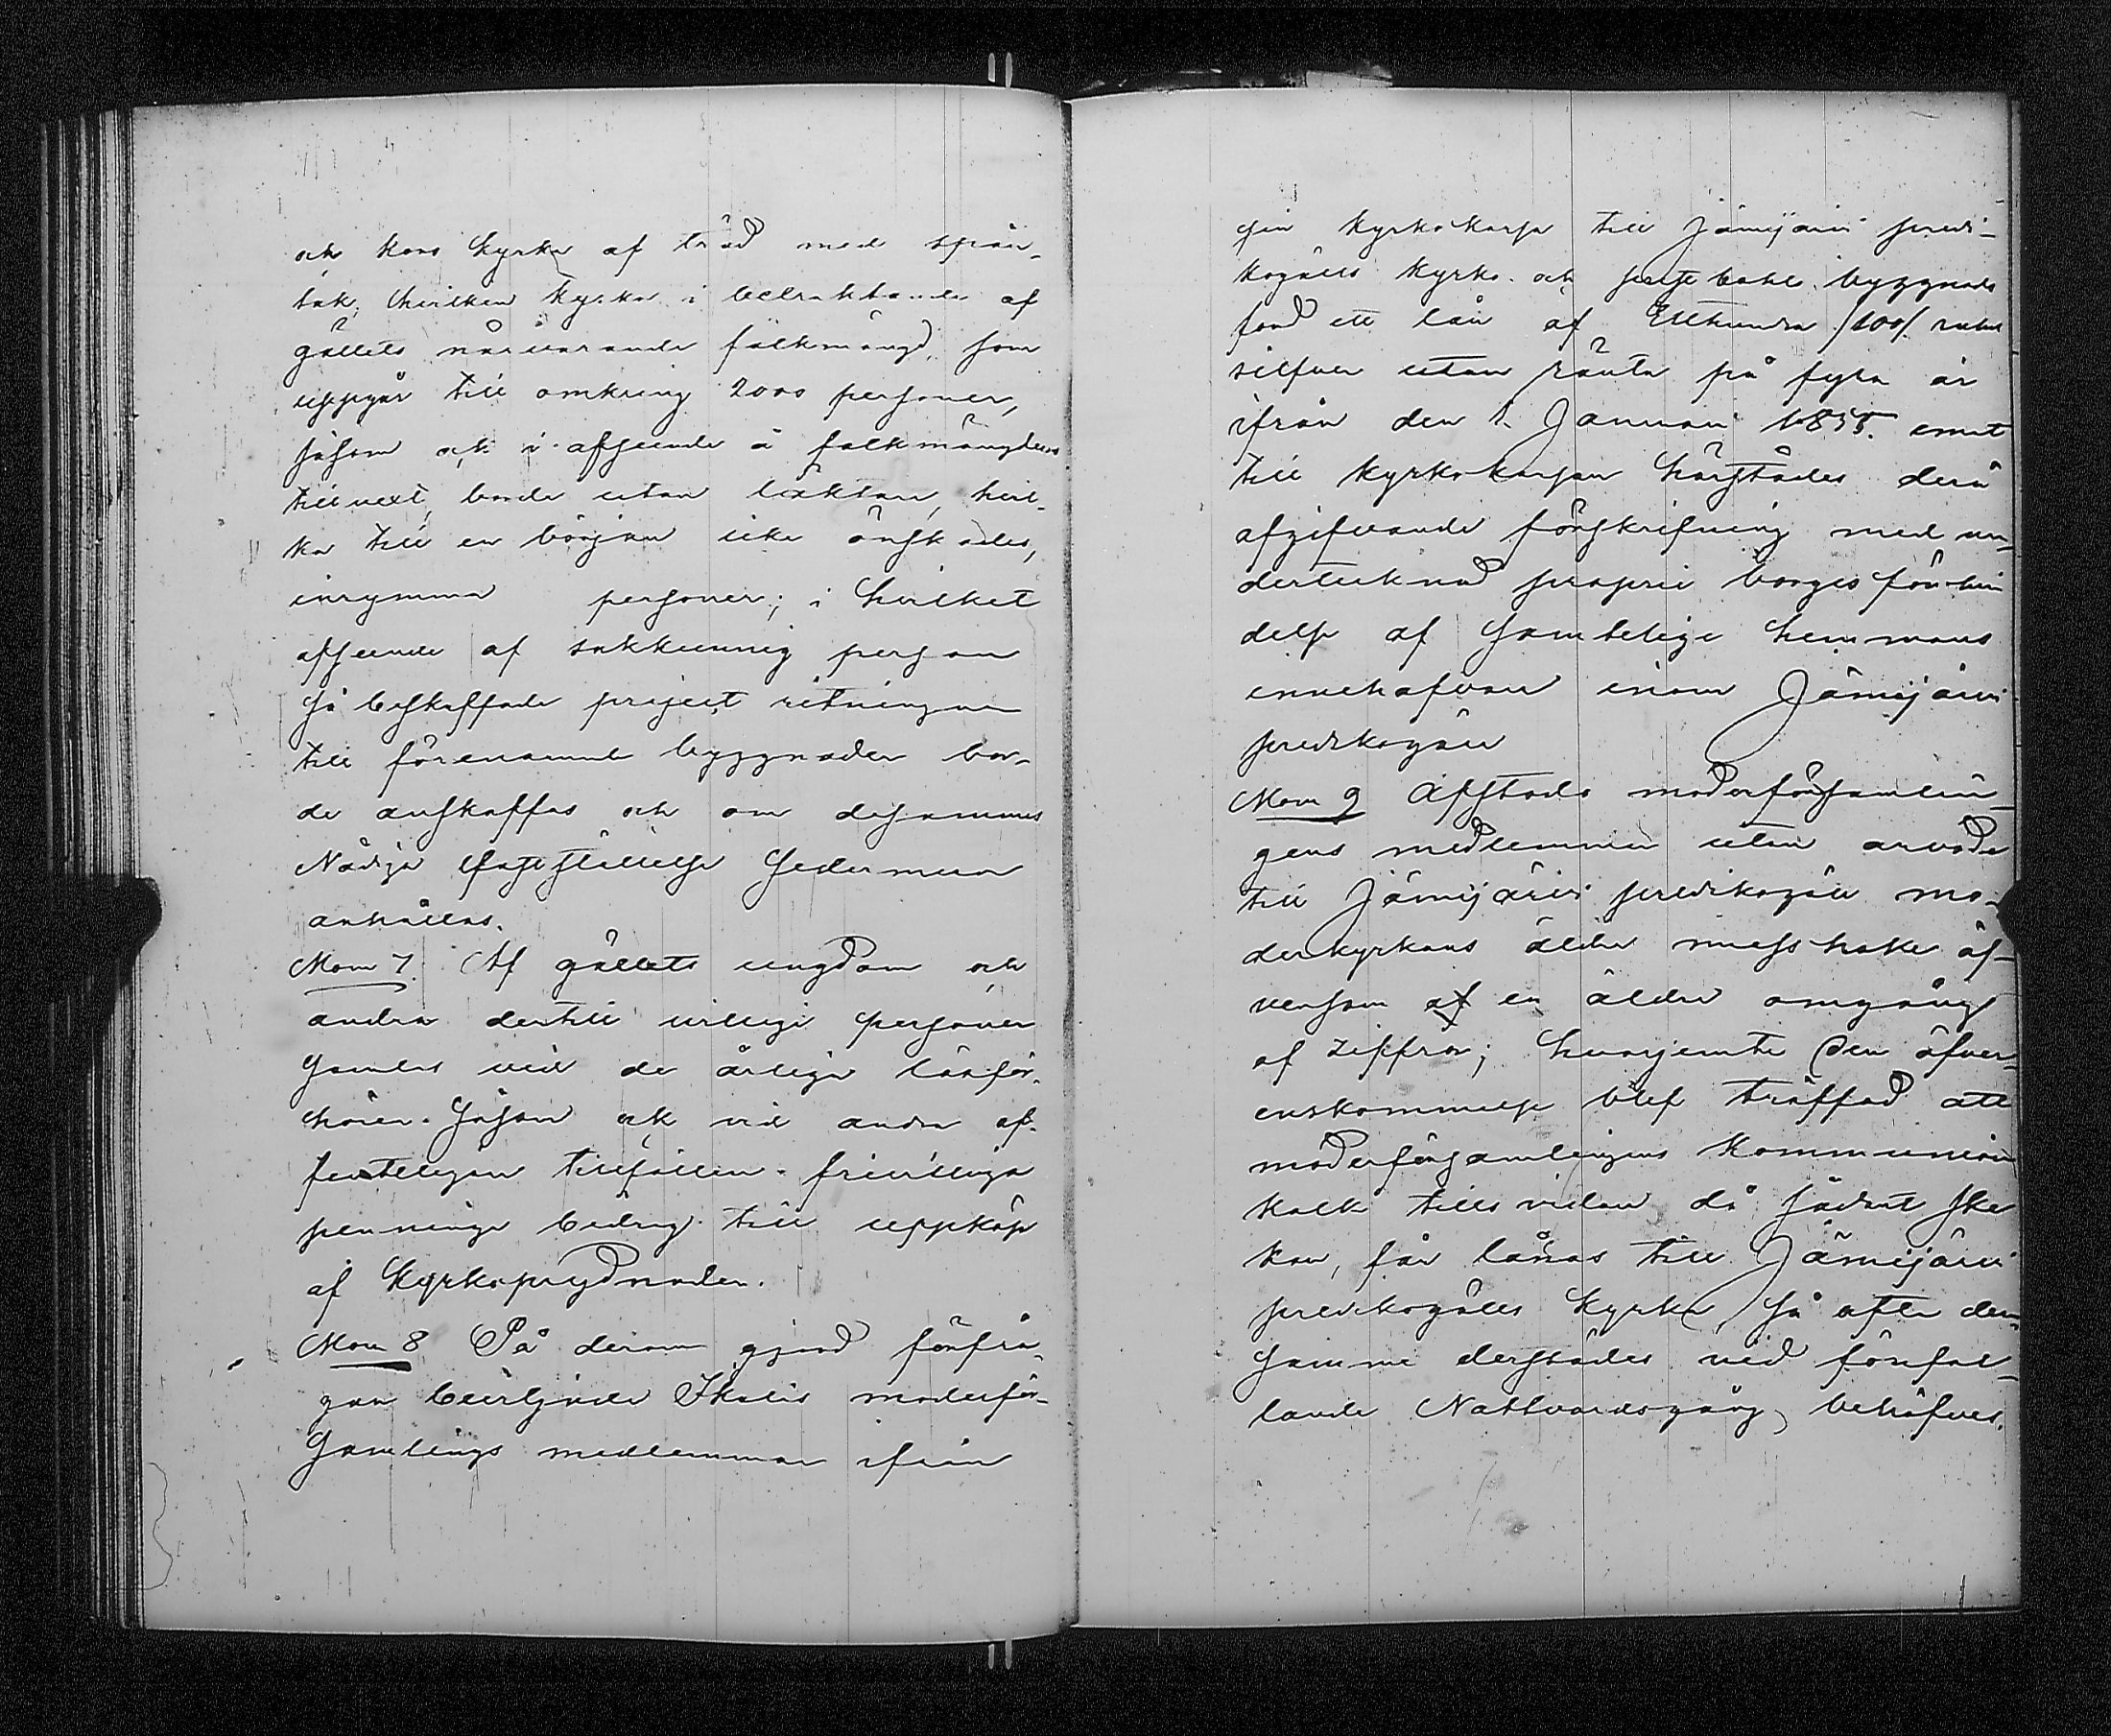 och kors kyrka af träd med spån-
tak, hvilken kyrka i betraktande af
gällets närvarande folkmängd, som
uppgår till omkring 2000 personer,
såsom ock i afseende å folkmängdens
tillvext, borde utan läktare, hvil-
ka till en början icke önskades,
inrymma personer; i hvilket
afseende af sakkunnig person
så beskaffade project ritningar
till förenämnde byggnader bor-
de anskaffas och om desammas
Nådiga fastställelse sedermera
anhållas.
Mom 7. Af gällets ungdom och
andra dertill villige personer
samlas vid de årliga läsför-
hören. såsom ock vid andra of-
fenteligen tillfällen. frivilliga
penninge bidrag till uppköp
af Kyrkoprydnader.
Mom 8 På derom gjord förfrå-
gan beviljade Ikalis moderför-
samlings medlemmar ifrån
sin kyrkokassa till Jämijärvi predi-
kogälls kyrko- och byggnads
fond ett lån af Etthundra /100/ rubel
silfver utan ränta på fyra år
ifrån den 1. Januari 1855. emot
till kyrkokassan härstädes derå
afgifvande förskrifning med un-
dertecknad proprie borges förbin
delse af samtelige hemmans
innehafvare inom Jämijärvi
predikogäll
Mom 9 Afstods moderförsamlin-
gens medlemmar utan arvode
till Jämijärvi predikogäll mo-
derkyrkans äldre messhake äf-
vensom af en äldre omgång
af ziffror; hvarjemte den öfver-
enskommelse blef träffad att
moderförsamlingens kommunion
kalk tills vidare då sådant ske
kan, får lånas till Jämijärvi
predikogälls kyrka, så ofta den-
samma derstädes vid förefal-
lande Nattvardsgång behöfves.